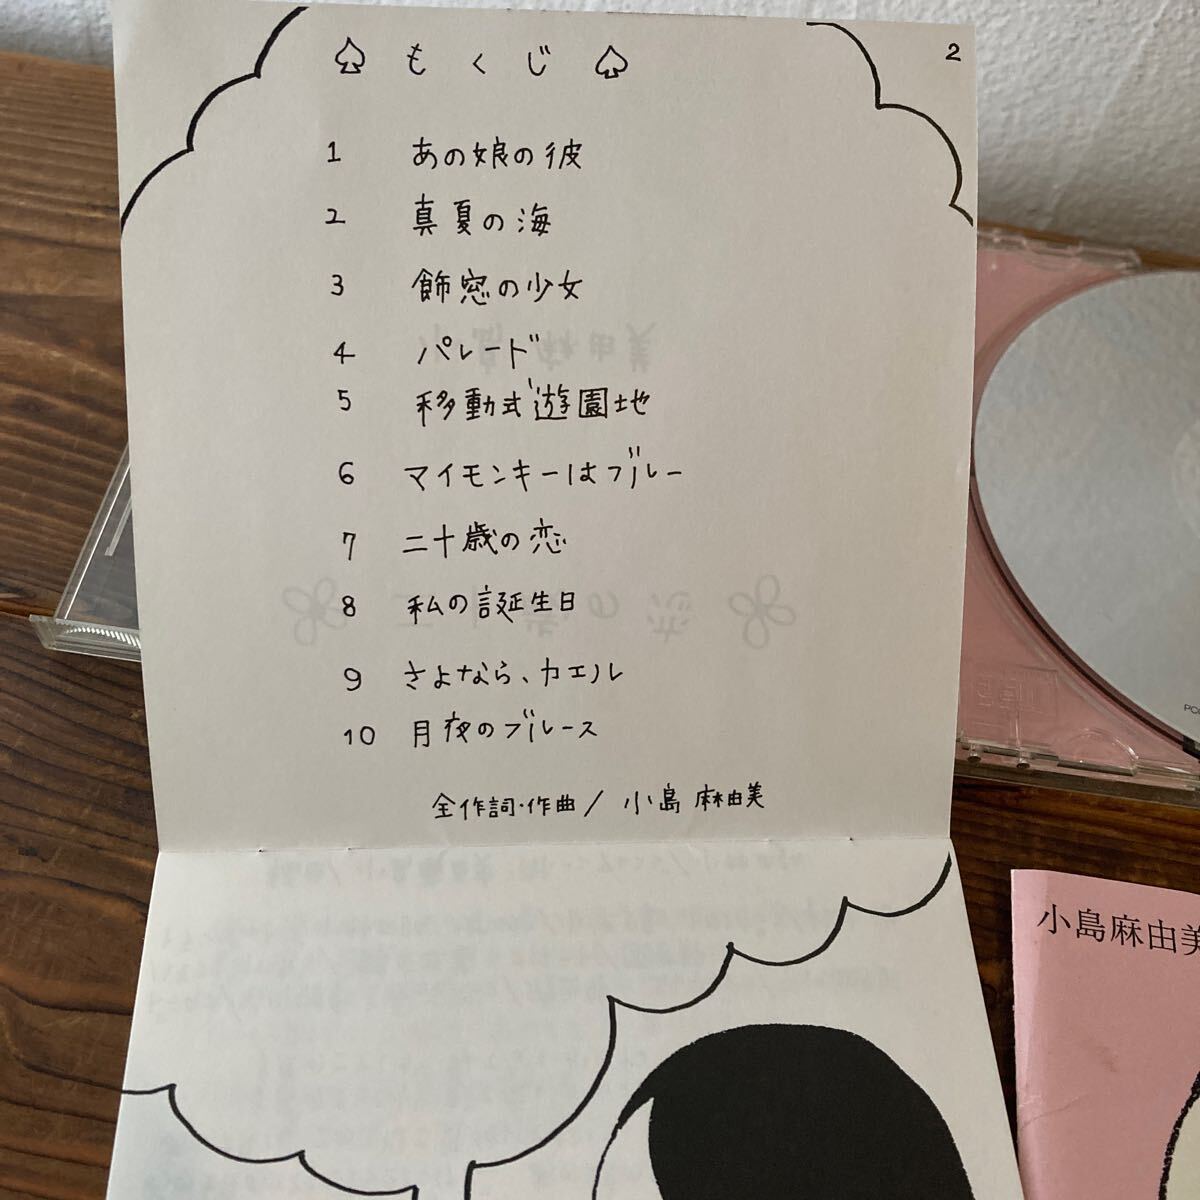 ♤ もくじ ♤
2
1 あの娘の彼
2 真夏の海
3 飾窓の少女
4 パレード
5 移動式遊園地
6 マイモンキーはブルー
7 二十歳の恋
8 私の誕生日
9 さよなら、カエル
10 月夜のブルース
全作詞・作曲/小島 麻由美
小島麻由美